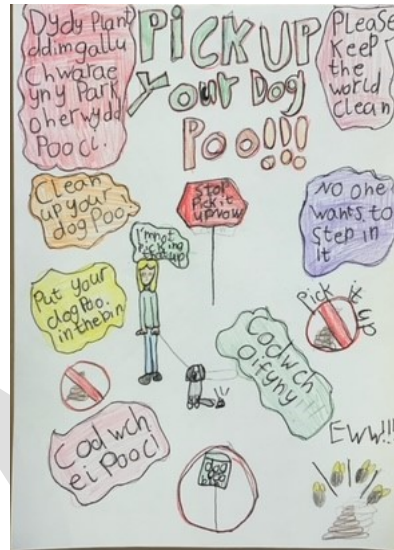 Dydy Plant
ddim gallu
Chwarae
yn y Park
oherwydd
Poo ci.
PICK UP
Your Dog
Poo!!!
PLease
Keep
the
world
clean
Clean
up your
dog Poo.
Stop
Pick it
up now
No one
wants to
Step in
it
I'm not
Picking
that up
Put your
dog Poo.
in the bin
Pick it up
Codwch
Oifyny!!!
Codwch
ei Poo ci
EWW!!!
dog